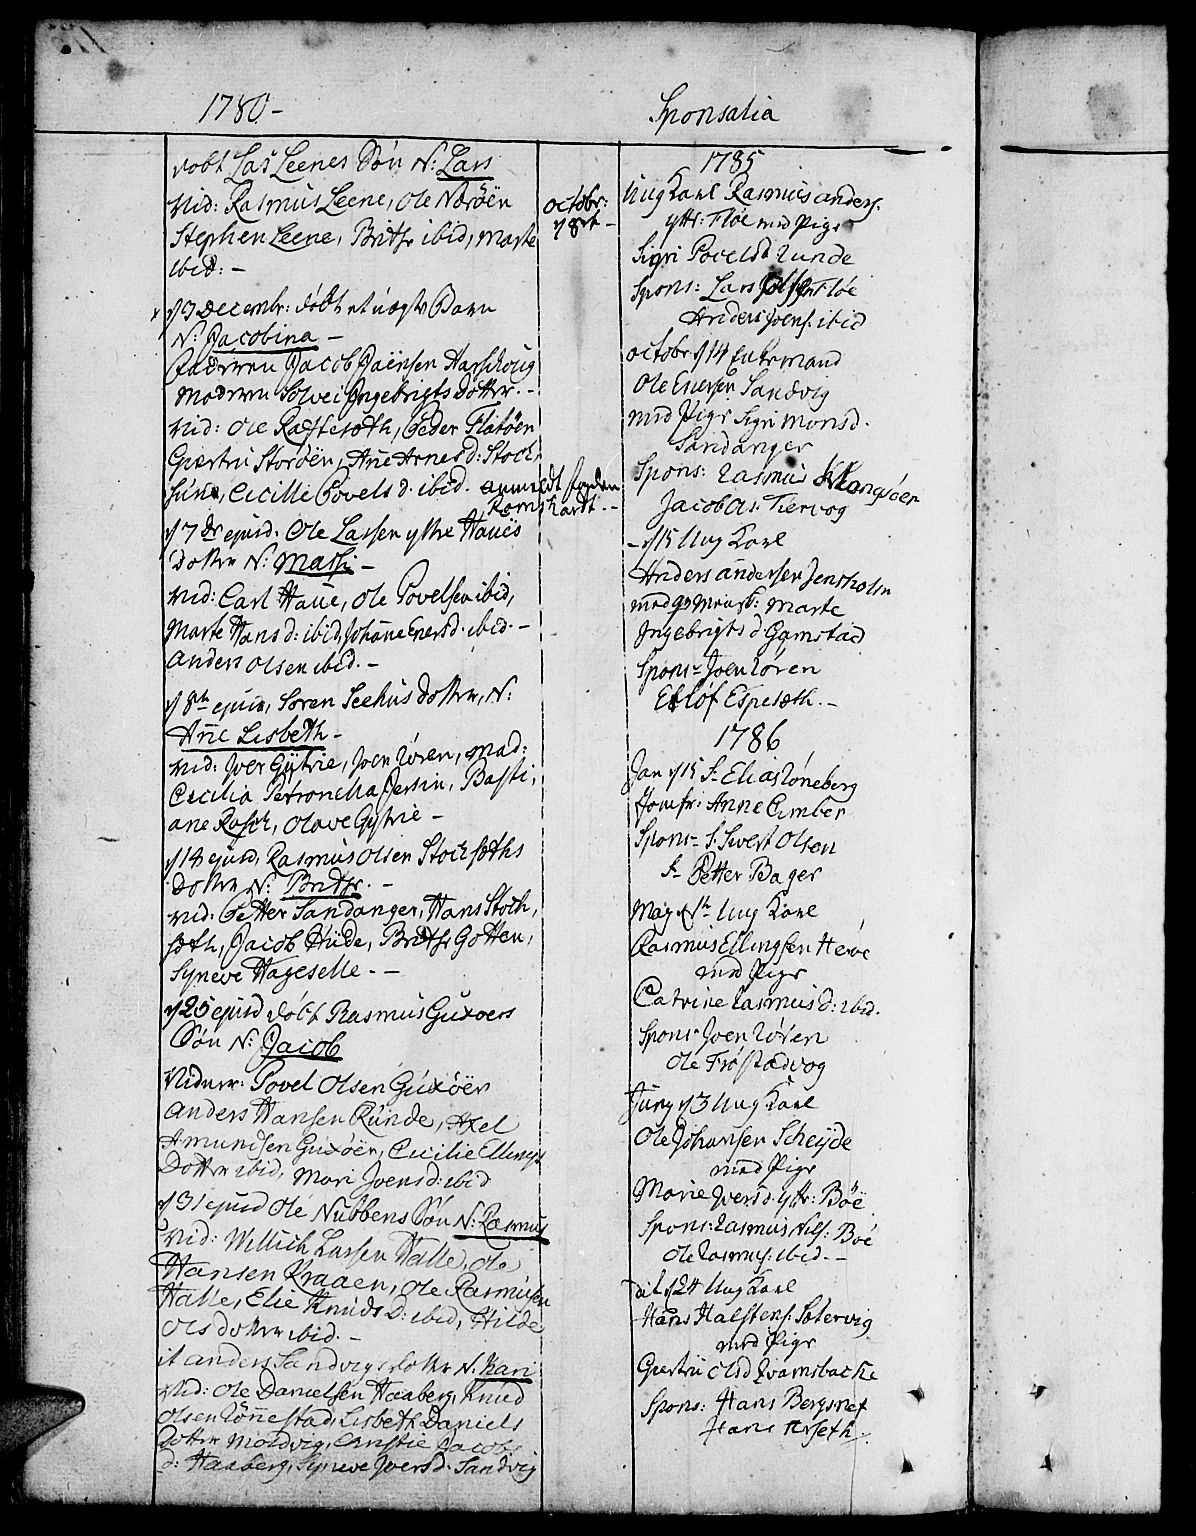 1780-
Sponsalia
døbt Las Leenes Søn N: Lars
Vid: Rasmus Leene, Ole Nærøen
Stephen Leene, Brithe ibid, Marte
ibid: -
Decembr: døbt et uægte Barn
N: Jacobina -
Faderen Jacob Jaensen Harschoug
Moderen Solvei Ingebrigts Dotter. -
Vid: Ole Raftesæth, Peder Flatøen
Giertru Storøen, Ane Arnesd: Stoch
Cecille Povels d. ibid. anmeldt
7de ejusd. Ole Lassen ytre Haues
Dotter N: Massi -
Vid: Carl Haue, Ole Povelsen ibid,
Marte Hans d: ibid, Johane Enersd. ibid. -
Anders Olsen ibid. -
8te ejusd, Søren Seehus dotter, N:
Ane Lisbeth -
Vid: Iver Gytrie, Joen Røren, Mad:
Cecilia Petronella Jersin, Basti,
ane Rasch, Olave Gytrie -
14 ejusd, Rasmus Olsen Stochsæths
Dotter N: Brithe. -
Vid. Petter Sandanger, Hans Stoch,
sæth, Jacob Hide, Brithe Gotten,
Syneve Hageselle. -
25 ejusd døbt Rasmus Guxøers
Søn N: Jacob
Vidner: Povel Olsen Guxøer
Anders Hansen Runde, Axel
Amundsen Guxøer, Cecilie Ellings
Dotter ibid, Mari Joensd: ibid
31 ejusd Ole Nubbens Søn N: Rasmus
Vid: Willich Larsen Halle, Ole
Hansen Kraaen, Ole Rasmusen
Halle, Elie Knuds D: ibid, Hilde
Ols dotter ibid. -
it anders Sandvigs dotter N: Kari
Vid: Ole Danielsen Haaberg, Knud
Olsen Rønnestad, Lisbeth Daniels
Dotter Moldvig, Christie Jacobs
d: Haaberg, Syneve Iversd. Sandvig
octobr:
1785
Ung Karl Rasmus anders.
ytts: Fløe med Pige
Sigri Povelsd Runde
Spons: Lars Fløe
Anders Joens. ibid
octobr 14 Enkemand
Ole Enersen Sandvig
med Pige Sigri Monsd.
Sandanger
Spons: Rasmus Klangsøer
Jacob Ols. Tiervog
- 15 Ung Karl
Anders andersen Jensholm
med Marte
Ingebrigts d Gamstad
Spons- Joen Røren
Elløf Espesæth. -
1786
Jan 15 S- Elias Røneberg
Jomfr: Anne Cumber
Spons- S. Swert Olsen
S- Petter Bager
May Ung Karl
Rasmus Ellingsen Herøe
med Pige
Catrine Rasmus d: ibid.
Spons- Joen Røren
Ole Frøstadvog
Juny 3 Ung Karl
Ole Johansen Scheide
med Pige
Marie Iversd. ytt: Bøe
Spons: Rasmus Nils: Bøe
Ole Rasmus: ibid. -
dit 24 Ung Karl
Hans Halstens: Sætervig
med Pige
Giertru Olsd Kvamsbacke
Spons: Hans Bergsnes
Hans Arseth.